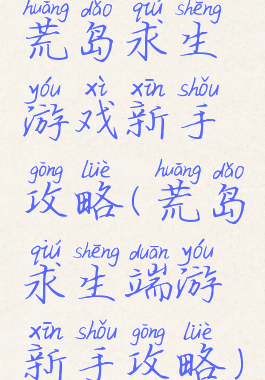 huāng dǎo qiú shēng
荒岛求生
yóu xì xīn shǒu
游戏新手
gōng lüè huāng dǎo
攻略(荒岛
qiú shēng duān yóu
求生端游
xīn shǒu gōng lüè
新手攻略)